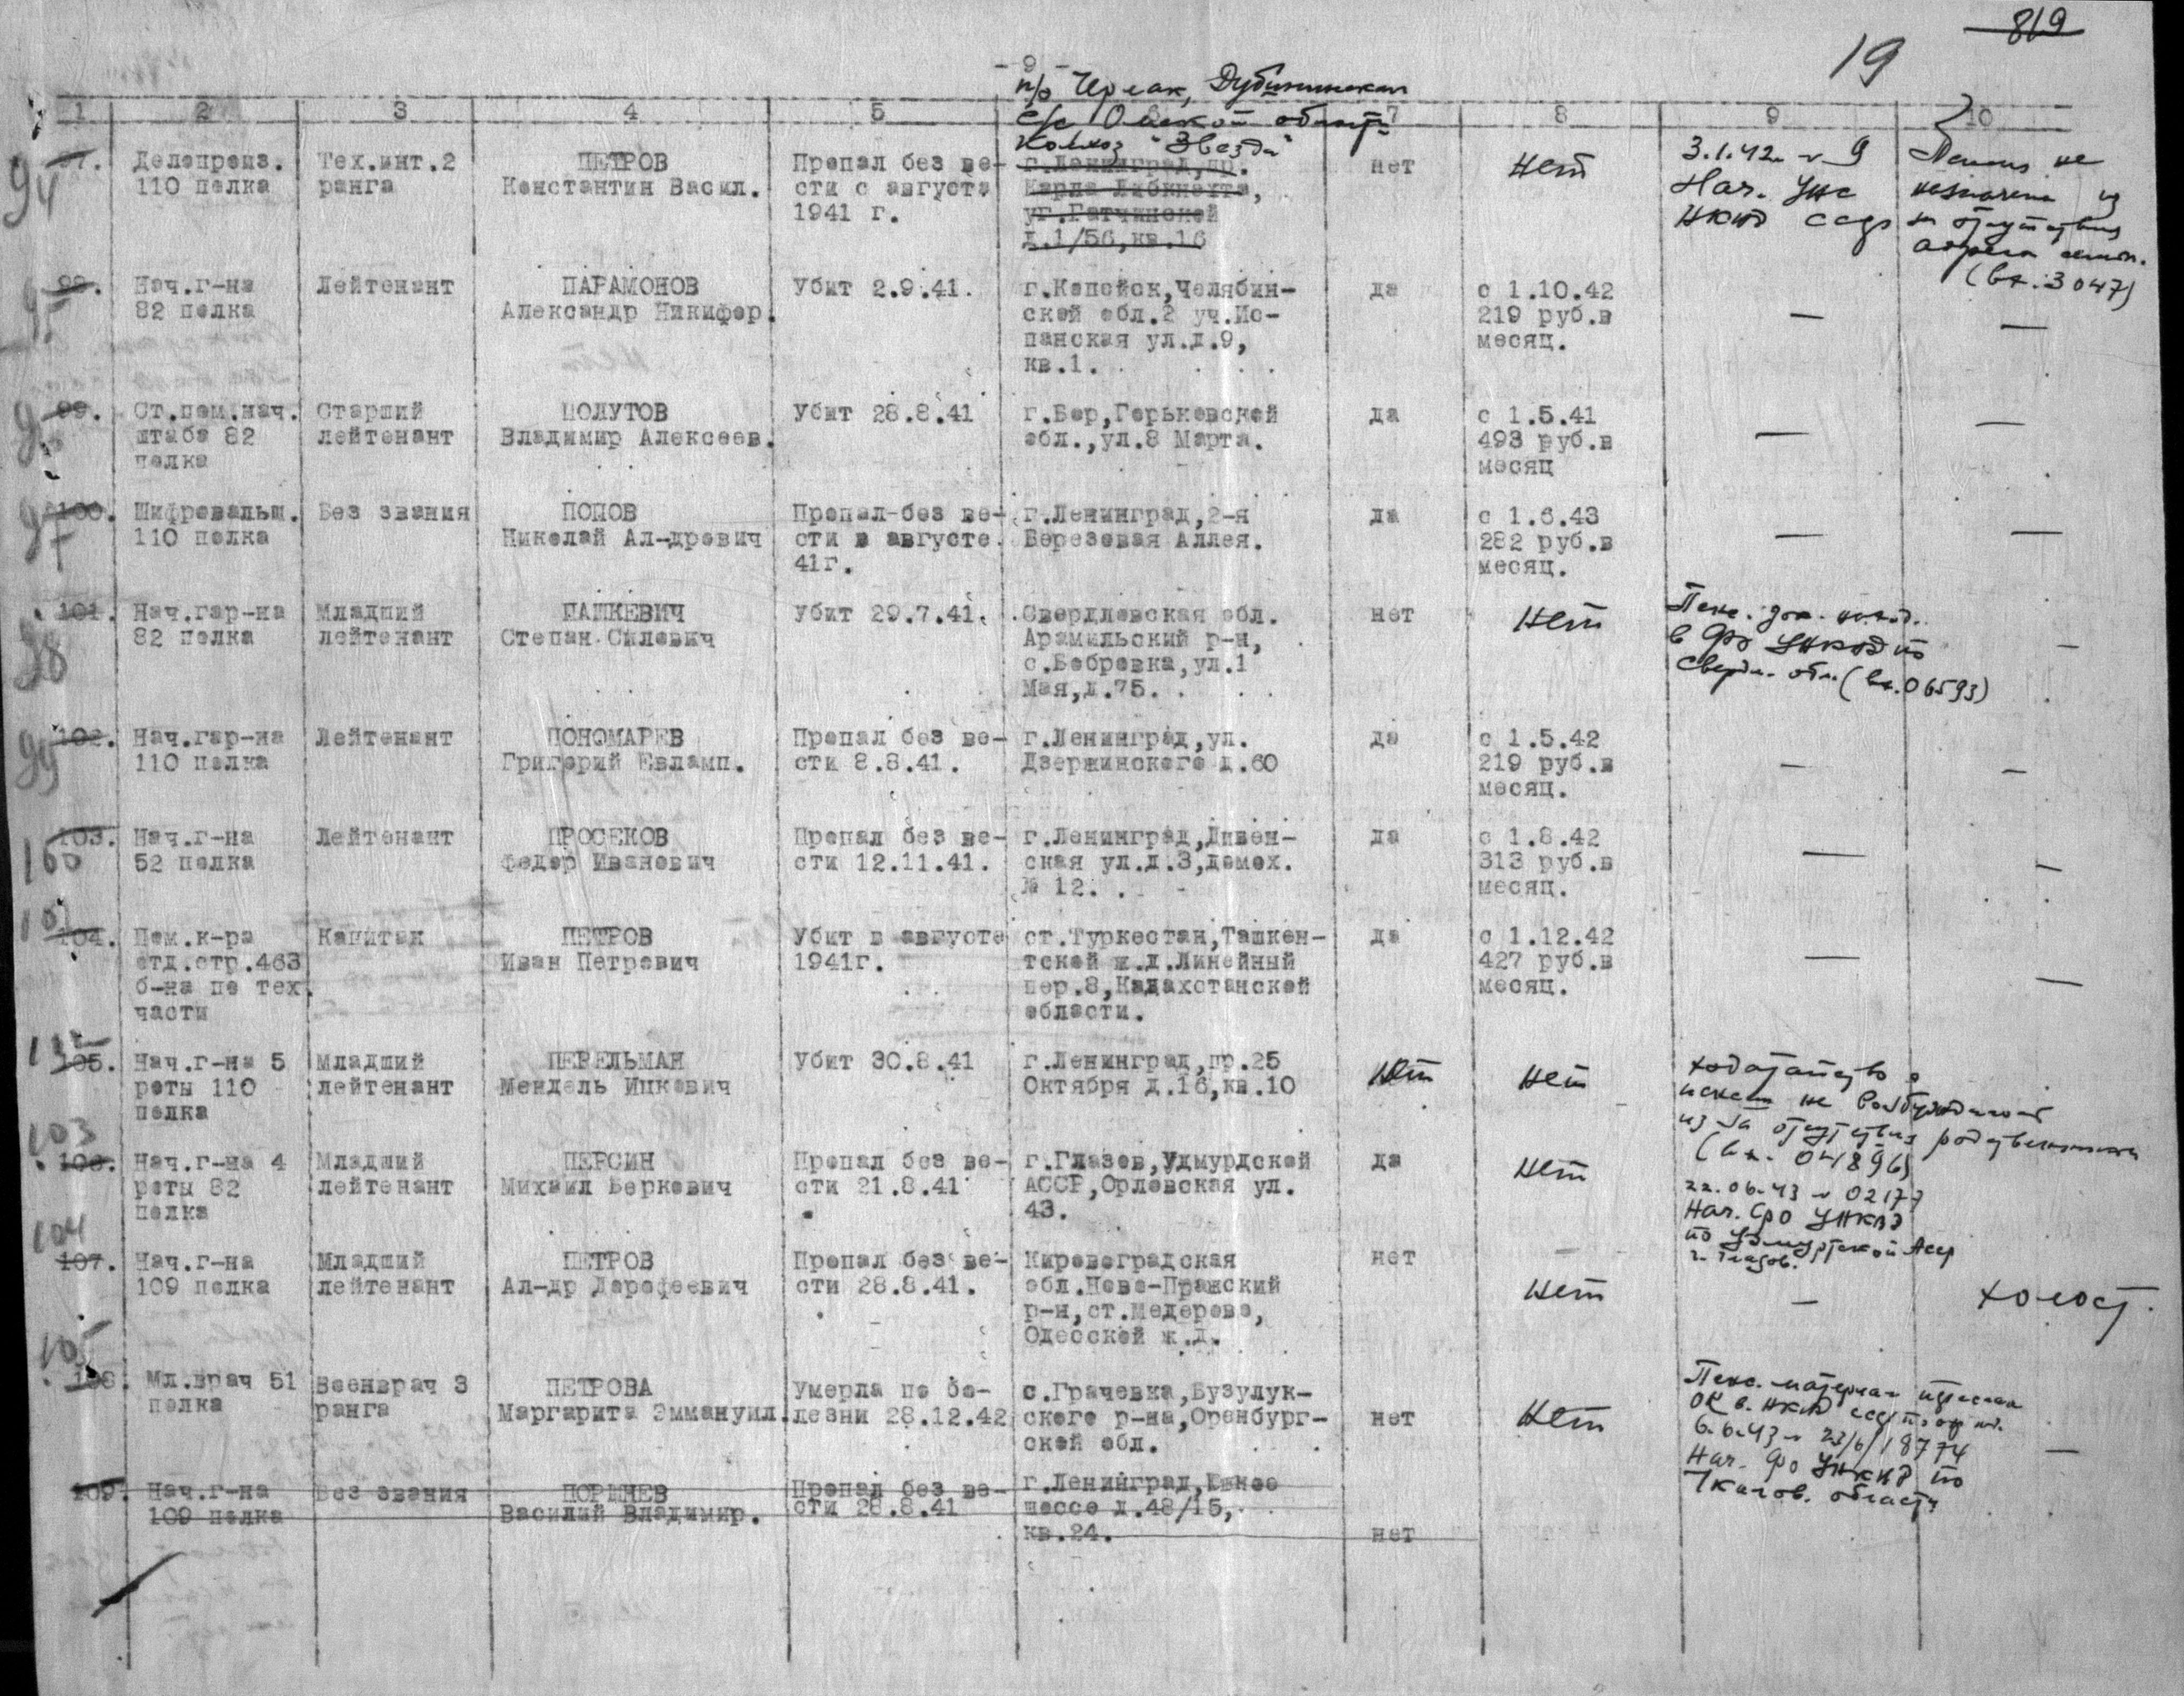 819
19
- 9 -
п/о Черлак, Дубининская
с/с Омской области
Колхоз "Звезда"
1 2 3 4 5 7 8 9 10
94
97. Делопроиз. Тех.инт.2 ПЕТРОВ Пропал без ве- г.Ленинград,пр. нет Нет 3.1.42 № 9
110 полка ранга Константин Васил. сти с августа Карла Либкнехта, Нач. УНС не назначена из
1941 г. уг.Гатчинской НКВД СССР за отсутствия
д.1/56,кв.16 адреса
(вх.3047)
98. Нач.г-на Лейтенант ПАРАМОНОВ Убит 2.9.41. г.Копейск,Челябин- да с 1.10.42
82 полка Александр Никифор. ской обл.2 уч.Ис- 219 руб.в — —
панская ул.д.9, месяц.
кв.1.
99. Ст.пом.нач. Старший ПОЛУТОВ Убит 28.8.41 г.Бор,Горьковской да с 1.5.41
штаба 82 лейтенант Владимир Алексеев. обл.,ул.8 Марта. 493 руб.в — —
полка месяц
100. Шифровальщ. Без звания ПОПОВ Пропал-без ве- г.Ленинград,2-я да с 1.6.43
110 полка Николай Ал-дрович сти в августе Березовая Аллея. 282 руб.в — —
41г. месяц.
98
101. Нач.гар-на Младший ПАШКЕВИЧ Убит 29.7.41. Свердловская обл. нет Нет Пенс.
82 полка лейтенант Степан Силович Арамильский р-н, в ФО УНКВД по —
с.Бобровка,ул.1 Сверд. обл. (вх.06593)
Мая,д.75.
99
102. Нач.гар-на Лейтенант ПОНОМАРЕВ Пропал без ве- г.Ленинград,ул. да с 1.5.42
110 полка Григорий Евламп. сти 8.8.41. Дзержинского д.60 219 руб.в — —
месяц.
100
103. Нач.г-на Лейтенант ПРОСЕКОВ Пропал без ве- г.Ленинград,Дивен- да с 1.8.42
52 полка Федор Иванович сти 12.11.41. ская ул.д.3,домох. 313 руб.в — —
№ 12. месяц.
101
104. Пом.к-ра Капитан ПЕТРОВ Убит в августе ст.Туркестан,Ташкен- да с 1.12.42
отд.стр.463 Иван Петрович 1941г. тской ж.д.Линейный 427 руб.в — —
б-на по тех. пер.8,Кадахстанской месяц.
части области.
105. Нач.г-на 5 Младший ПЕРЕЛЬМАН Убит 30.8.41 г.Ленинград,пр.25 Нет Нет ходатайство о
роты 110 лейтенант Мендель Ицкович Октября д.16,кв.10 пенсии не возбуждалось
полка из-за отсутствия родственников
(вх. 04896)
103
106. Нач.г-на 4 Младший ПЕРСИН Пропал без ве- г.Глазов,Удмурдской да Нет 22.06.43 № 02177
роты 82 лейтенант Михаил Беркович сти 21.8.41 АССР,Орловская ул. Нач. ФО УНКВД
полка 43. по Удмуртской АССР
г. Глазов.
104
107. Нач.г-на Младший ПЕТРОВ Пропал без ве- Кировоградская нет Нет — холост.
109 полка лейтенант Ал-др Дорофеевич сти 28.8.41. обл.Ново-Пражский
р-н,ст.Медерово,
Одесской ж.д.
105
108. Мл.врач 51 Военврач 3 ПЕТРОВА Умерла по бо- с.Грачевка,Бузулук- нет Нет Пенс. материал
полка ранга Маргарита Эммануил. лезни 28.12.42 ского р-на,Оренбург- —
ской обл. 6.6.43 № 23/6/18774
Нач. ФО УНКВД по
Чкалов. области
109. Нач.г-на Без звания ПОРШНЕВ Пропал без ве- г.Ленинград,Южное
109 полка Василий Владимир. сти 28.8.41 шоссе д.48/15,
кв.24. нет